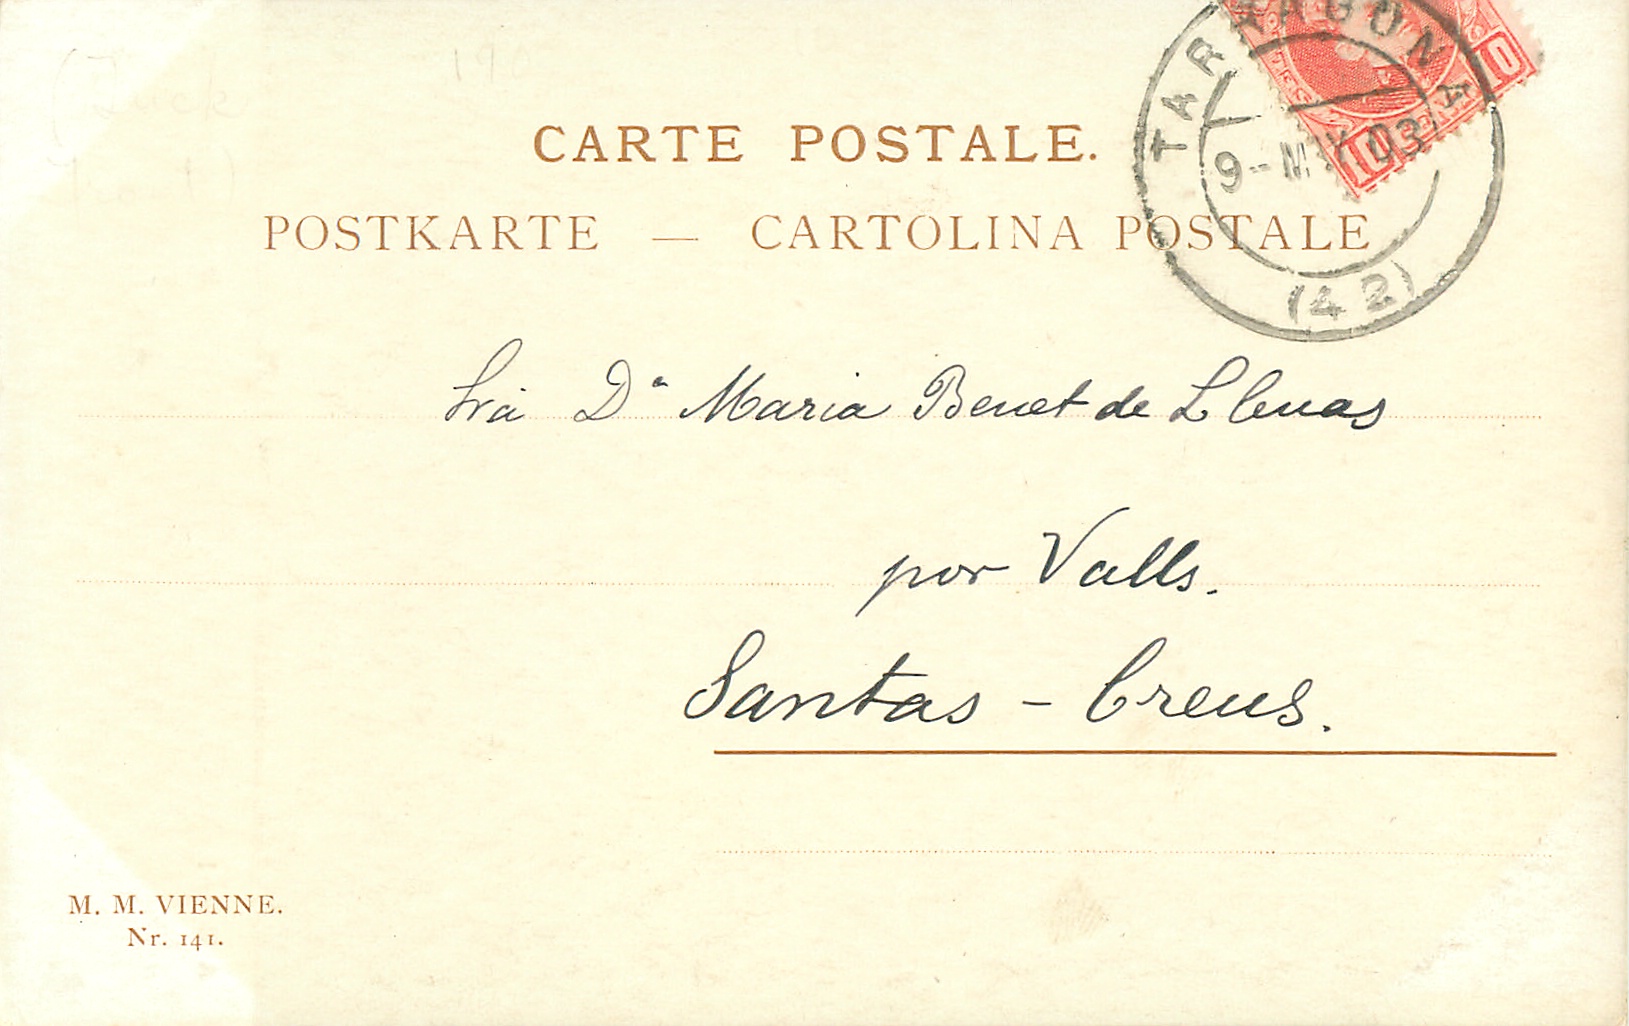 CARTE POSTALE.
POSTKARTE — CARTOLINA POSTALE
TARRAGONA
9-MAY.03
(42)
10 10
Sra Dª Maria Benet de Llenas
por Valls.
Santas - Creus.
M. M. VIENNE.
Nr. 141.